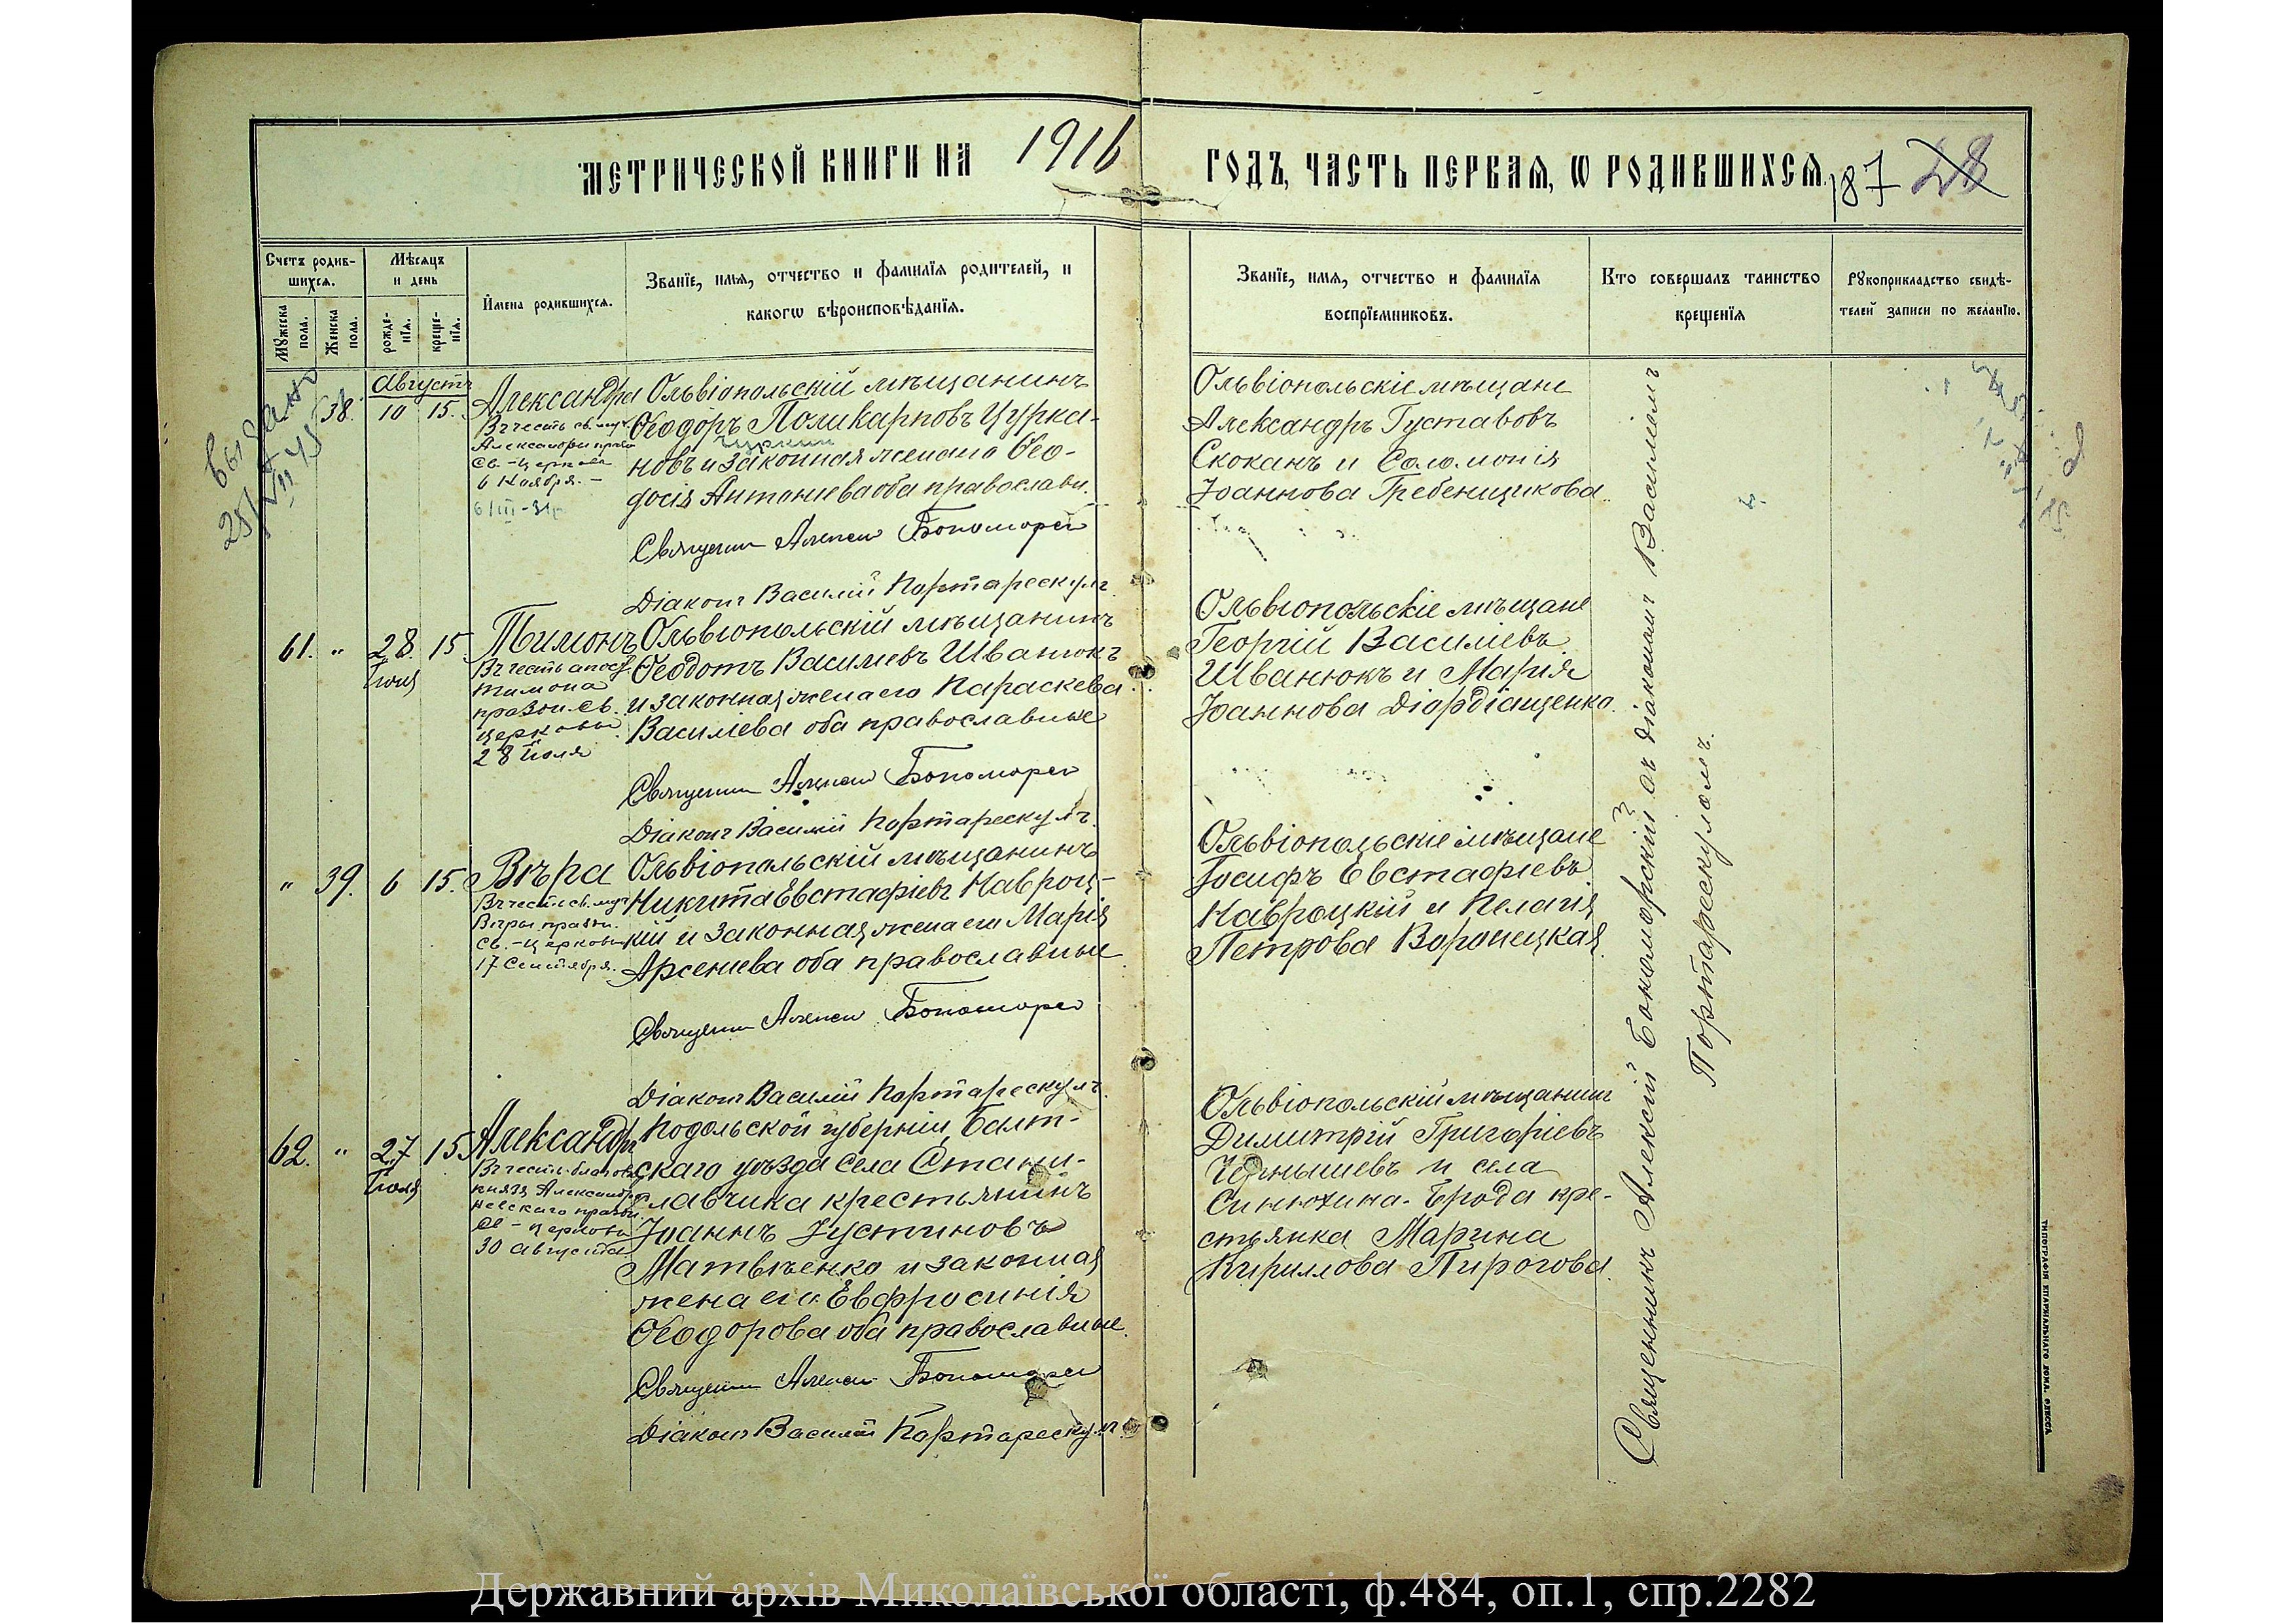 МЕТРИЧЕСКОЙ КНИГИ НА 1916 ГОДЪ, ЧАСТЬ ПЕРВАЯ, Ѡ РОДИВШИХСЯ.
187 28
Счетъ родив-
шихся.
Мѹжеска пола.
Женска пола.
Мѣсяцъ
и день
рожде-
нїя.
креще-
нїя.
Имена родившихся.
Званїе, имя, отчество и фамилїя родителей, и
какогѡ вѣроисповѣданїя.
Званїе, имя, отчество и фамилїя
воспрїемниковъ.
Кто совершалъ таинство
крещенїя
Рѹкоприкладство свидѣ-
телей записи по желанїю.
выдано
25/VII 45
Августъ
38. 10 15.
Александра
Въ честь св. муч.
Александры празд.
Св. - Церковью
6 Ноября. -
6/III-31
Ольвіопольскій мѣщанинъ
Ѳеодоръ Поликарповъ Цурка-
Цуркан
новъ и законная жена его Ѳео-
досія Антоніева оба православн.
Священник Алексей Бономорс
Діаконъ Василій Портарескулъ
Ольвіопольскіе мѣщане
Александръ Густавовъ
Скоканъ и Соломонія
Іоаннова Гребенщикова.
61. " 28 15.
Іюля
Тимонъ
Въ честь апост.
Тимона
праздн. св.
церковью
28 Іюля
Ольвіопольскій мѣщанинъ
Ѳеодотъ Василіевъ Иванюкъ
и законная жена его Параскева
Василіева оба православные
Священник Алексей Бономорс
Діаконъ Василій Портарескулъ.
Ольвіопольскіе мѣщане
Георгій Василіевъ
Иванюкъ и Марія
Іоаннова Діордіащенко.
" 39. 6 15.
Вѣра
Въ честь св. муч.
Вѣры праздн.
Св. - Церковью
17 Сентября.
Ольвіопольскій мѣщанинъ
Никита Евстафіевъ Навроц-
кій и законная жена его Марія
Арсеніева оба православные
Священник Алексей Бономорс
Діаконъ Василій Портарескулъ
Ольвіопольскіе мѣщане
Іосифъ Евстафіевъ
Навроцкій и Пелагія
Петрова Воронецкая
62. " 27 15
Іюля
Александръ
Въ честь благов.
князя Александра
Невскаго праздн.
Св - церковью
30 августа
Подольской губерніи, Балт-
скаго уѣзда села Стани-
славчика крестьянинъ
Іоаннъ Іустиновъ
Матвѣенко и законная
жена его Евфросинія
Ѳеодорова оба православные.
Священник Алексей Бономорс
Діаконъ Василій Портарескулъ.
Ольвіопольскій мѣщанинъ
Димитрій Григоріевъ
Чернышевъ и села
Синюхина - Брода кре-
стьянка Марина
Кириллова Пирогова.
Священникъ Алексій Бономорскій съ діакономъ Василіемъ
Портарескуломъ.
ТИПОГРАФІЯ ЕПАРХІАЛЬНАГО ДОМА, ОДЕССА
Державний архів Миколаївської області, ф.484, оп.1, спр.2282